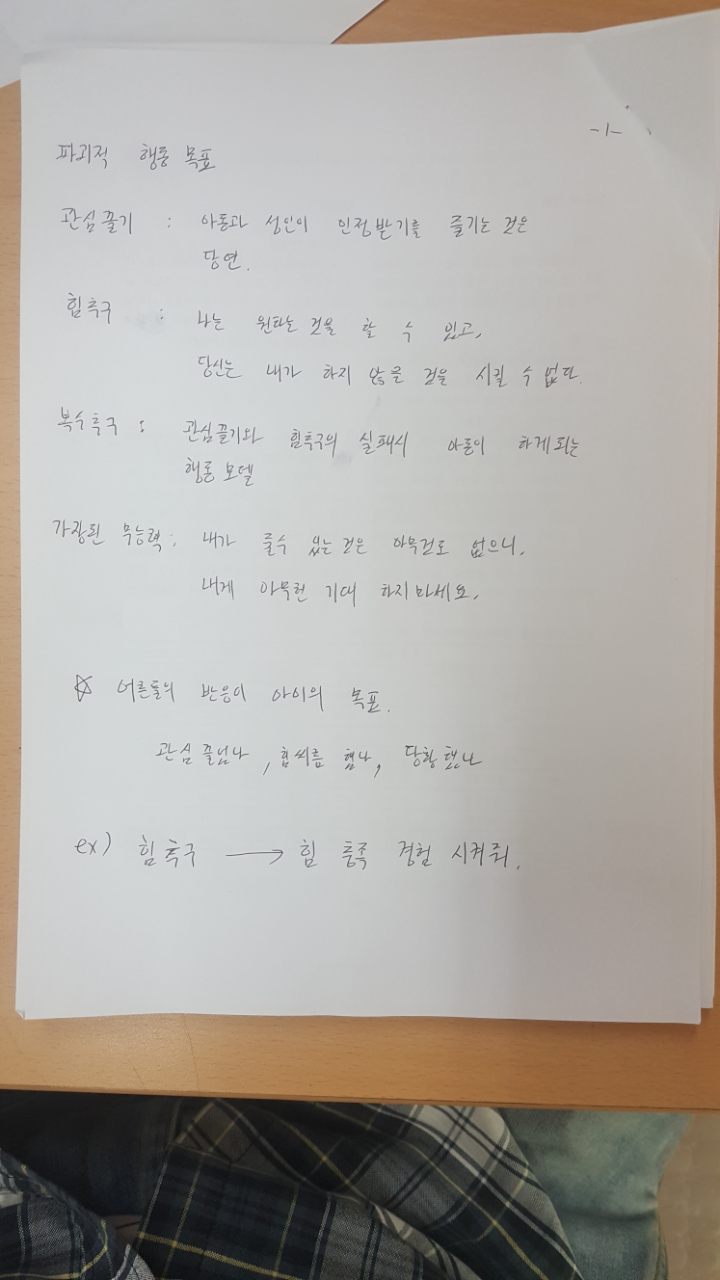 -1-
파괴적 행동 목표
관심끌기 : 아동과 성인이 인정받기를 즐기는 것은
당연.
힘추구 : 나는 원하는 것을 할 수 있고,
당신는 내가 하지 않을 것을 시킬 수 없다.
복수추구 : 관심끌기와 힘추구의 실패시 아동이 하게되는
행동 모델
가장된 무능력 : 내가 줄수 있는 것은 아무것도 없으니,
내게 아무런 기대 하지마세요.
☆ 어른들의 반응이 아이의 목표.
관심 끌었나, 힘씨름 했나, 당황 했나
ex) 힘추구 → 힘 충족 경험 시켜줘.